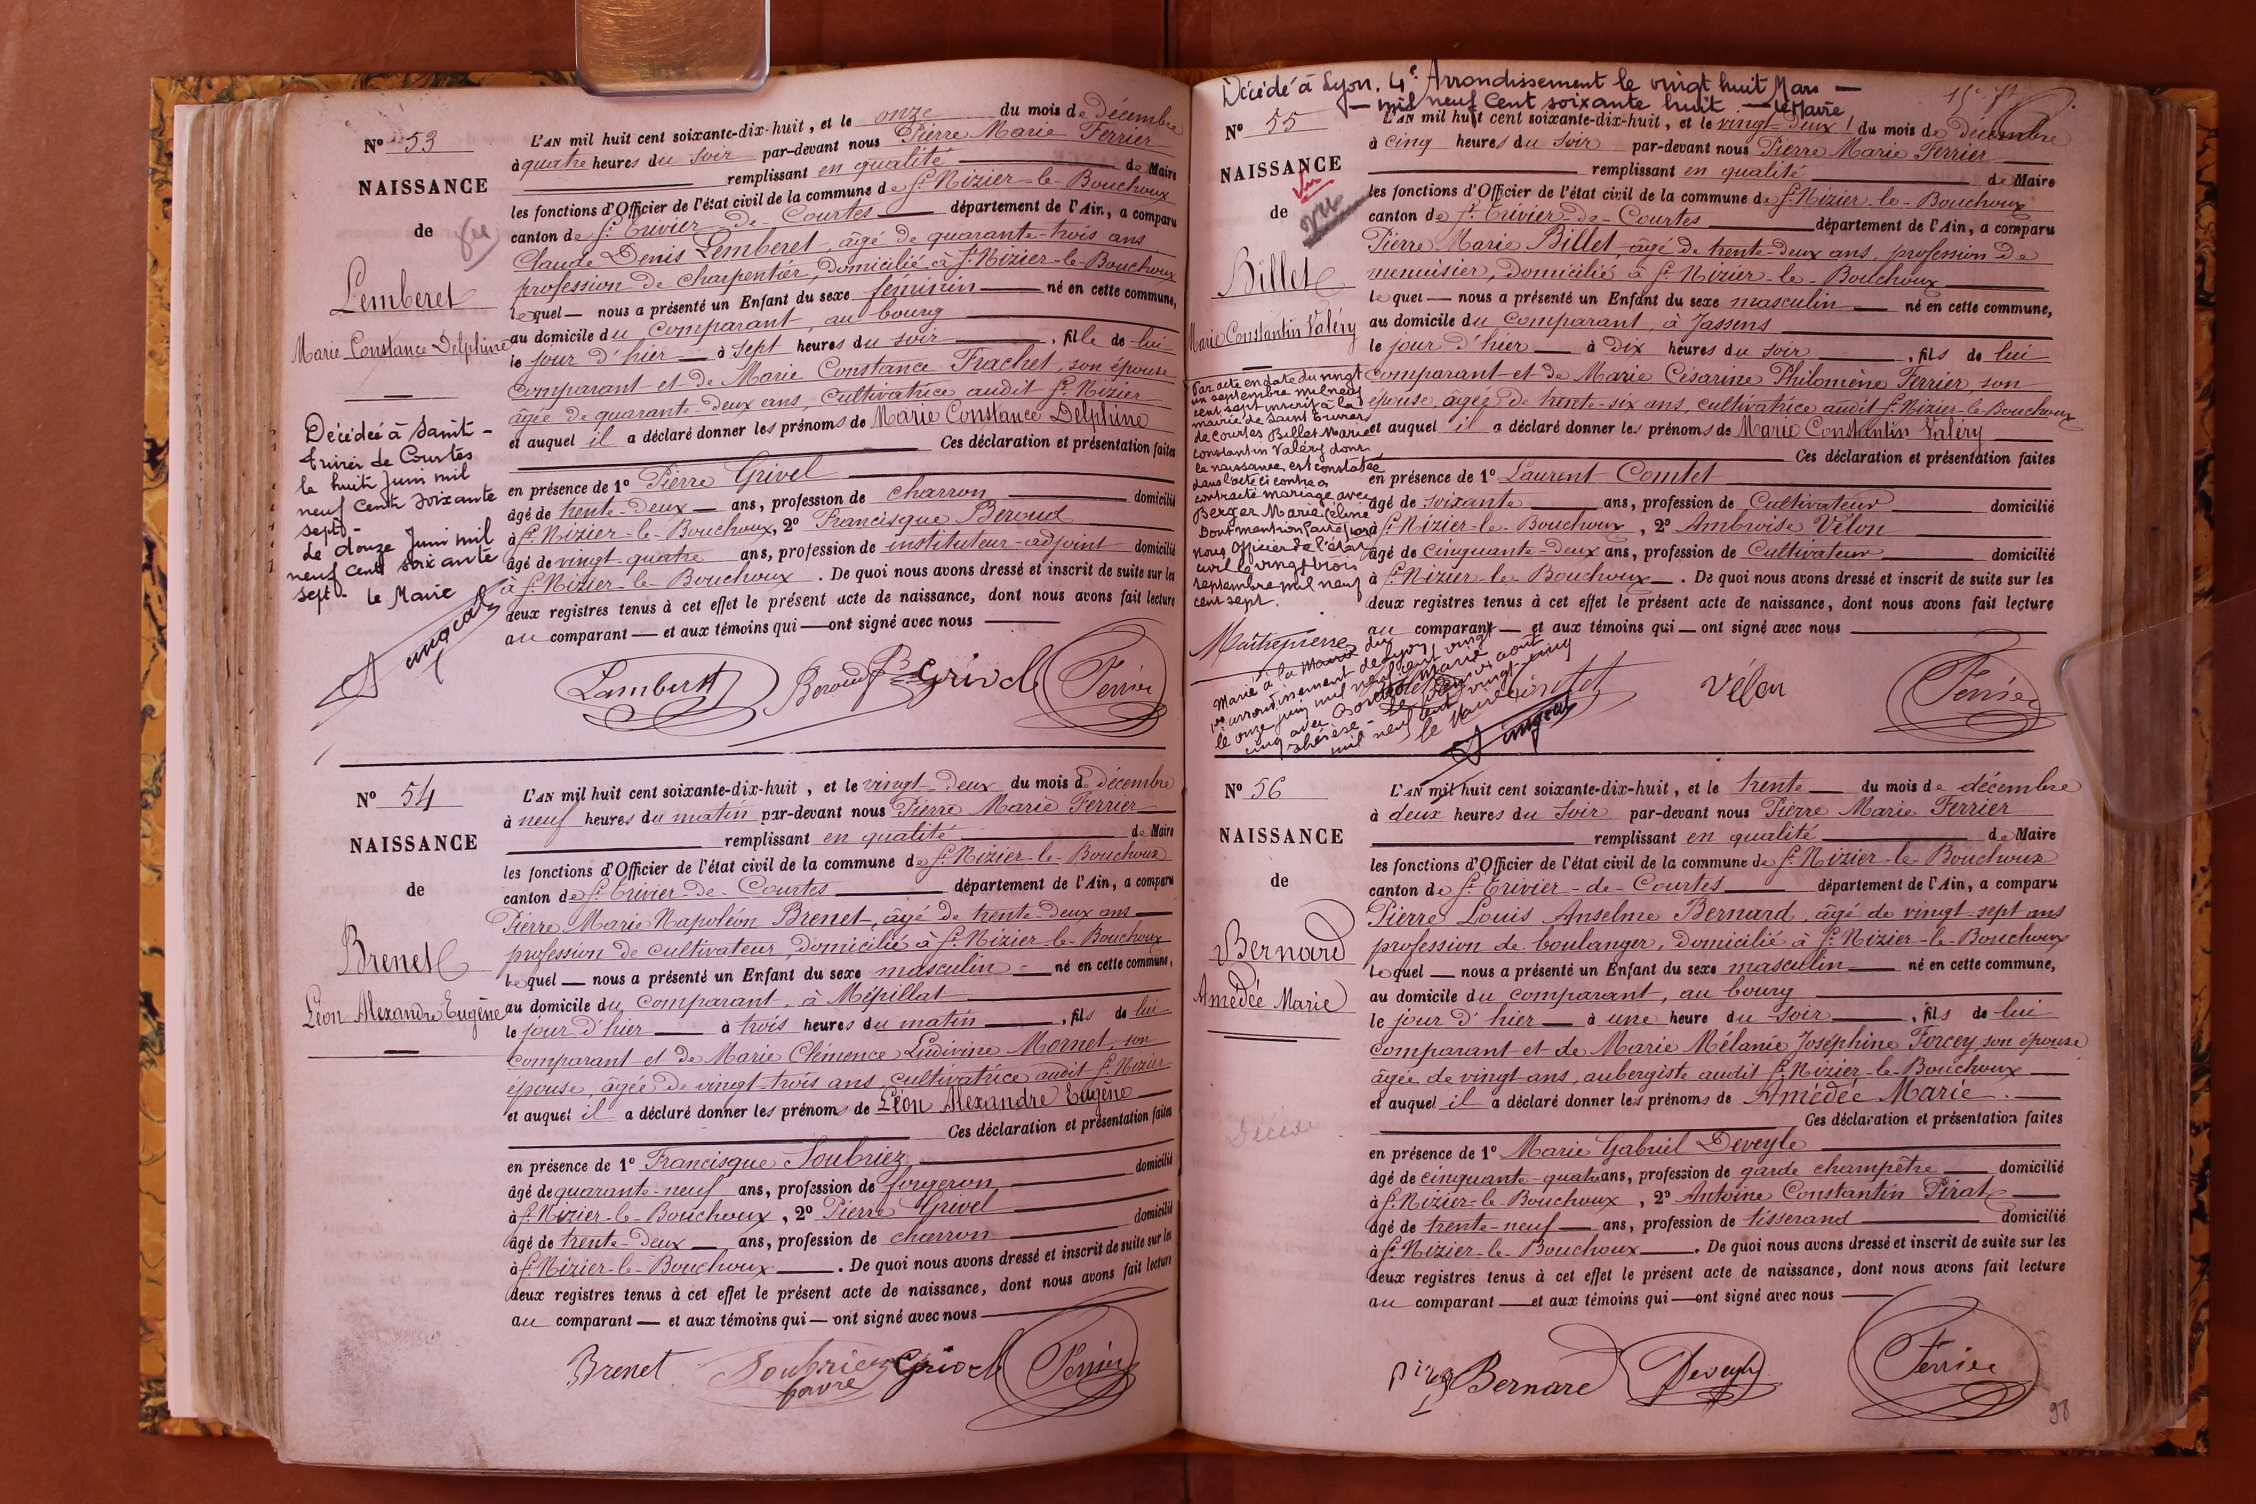 N° 53
NAISSANCE
de
vu
Lemberet
Marie Constance Delphine
Décédée à Saint-
Trivier de Courtes
le huit Juin mil
neuf cent soixante
sept.
Le douze Juin mil
neuf cent soixante
sept. le Maire
L'AN mil huit cent soixante-dix-huit, et le onze du mois de décembre
à quatre heures du soir par-devant nous Pierre Marie Ferrier
remplissant en qualité de Maire
les fonctions d'Officier de l'état civil de la commune de St Nizier-le-Bouchoux
canton de St Trivier-de-Courtes département de l'Ain, a comparu
Claude Denis Lemberet, âgé de quarante-trois ans
profession de charpentier, domicilié à St Nizier-le-Bouchoux
lequel nous a présenté un Enfant du sexe féminin né en cette commune,
au domicile du comparant, au bourg
le jour d'hier à sept heures du soir, fille de lui
comparant et de Marie Constance Frachet, son épouse
âgée de quarante-deux ans, cultivatrice audit St Nizier
et auquel il a déclaré donner les prénoms de Marie Constance Delphine
Ces déclaration et présentation faites
en présence de 1° Pierre Grivel
âgé de trente-deux ans, profession de charron domicilié
à St Nizier-le-Bouchoux, 2° Francisque Beroud
âgé de vingt-quatre ans, profession de instituteur-adjoint domicilié
à St Nizier-le-Bouchoux. De quoi nous avons dressé et inscrit de suite sur les
deux registres tenus à cet effet le présent acte de naissance, dont nous avons fait lecture
au comparant et aux témoins qui ont signé avec nous
Lamberet Beroud Pre Grivel Ferrier
N° 54
NAISSANCE
de
Brenet
Léon Alexandre Eugène
L'AN mil huit cent soixante-dix-huit, et le vingt-deux du mois de décembre
à neuf heures du matin par-devant nous Pierre Marie Ferrier
remplissant en qualité de Maire
les fonctions d'Officier de l'état civil de la commune de St Nizier-le-Bouchoux
canton de St Trivier-de-Courtes département de l'Ain, a comparu
Pierre Marie Napoléon Brenet, âgé de trente-deux ans
profession de cultivateur, domicilié à St Nizier-le-Bouchoux
lequel nous a présenté un Enfant du sexe masculin né en cette commune,
au domicile du comparant, à Mépillat
le jour d'hier à trois heures du matin, fils de lui
comparant et de Marie Clémence Ludivine Mornet, son
épouse, âgée de vingt-trois ans, cultivatrice audit St Nizier
et auquel il a déclaré donner les prénoms de Léon Alexandre Eugène
Ces déclaration et présentation faites
en présence de 1° Francisque Soubriez
âgé de quarante-neuf ans, profession de forgeron domicilié
à St Nizier-le-Bouchoux, 2° Pierre Grivel
âgé de trente-deux ans, profession de charron domicilié
à St Nizier-le-Bouchoux. De quoi nous avons dressé et inscrit de suite sur les
deux registres tenus à cet effet le présent acte de naissance, dont nous avons fait lecture
au comparant et aux témoins qui ont signé avec nous
Brenet Soubriez Grivel Ferrier
Décédé à Lyon. 4e Arrondissement le vingt huit Mars
mil neuf cent soixante huit. le Maire
N° 55
NAISSANCE
Vu
de
vu
Billet
Marie Constantin Valéry
Par acte en date du vingt
un septembre mil neuf
cent sept inscrit à la
mairie de Saint Trivier
de Courtes Billet Marie
Constantin Valéry dont
la naissance est constatée
dans l'acte ci contre a
contracté mariage avec
Berger Marie Céline
Dont mention faite par
nous Officier de l'état
civil le vingt trois
septembre mil neuf
cent sept.
Maitrepierre
Marié à la Mairie du
1er arrondissement de Lyon
le onze juin mil neuf cent vingt
cinq avec
Thérèse
mil neuf cent vingt-cinq
le Maire
L'AN mil huit cent soixante-dix-huit, et le vingt-deux du mois de décembre
à cinq heures du soir par-devant nous Pierre Marie Ferrier
remplissant en qualité de Maire
les fonctions d'Officier de l'état civil de la commune de St Nizier-le-Bouchoux
canton de St Trivier-de-Courtes département de l'Ain, a comparu
Pierre Marie Billet, âgé de trente-deux ans, profession de
menuisier, domicilié à St Nizier-le-Bouchoux
lequel nous a présenté un Enfant du sexe masculin né en cette commune,
au domicile du comparant, à Jassens
le jour d'hier à dix heures du soir, fils de lui
comparant et de Marie Césarine Philomène Ferrier, son
épouse, âgée de trente-six ans, cultivatrice audit St Nizier-le-Bouchoux
et auquel il a déclaré donner les prénoms de Marie Constantin Valéry
Ces déclaration et présentation faites
en présence de 1° Laurent Comtet
âgé de soixante ans, profession de Cultivateur domicilié
à St Nizier-le-Bouchoux, 2° Ambroise Vélon
âgé de cinquante-deux ans, profession de Cultivateur domicilié
à St Nizier-le-Bouchoux. De quoi nous avons dressé et inscrit de suite sur les
deux registres tenus à cet effet le présent acte de naissance, dont nous avons fait lecture
au comparant et aux témoins qui ont signé avec nous
Vélon Ferrier
N° 56
NAISSANCE
de
Bernard
Amédée Marie
Décédé
L'AN mil huit cent soixante-dix-huit, et le trente du mois de décembre
à deux heures du soir par-devant nous Pierre Marie Ferrier
remplissant en qualité de Maire
les fonctions d'Officier de l'état civil de la commune de St Nizier-le-Bouchoux
canton de St Trivier-de-Courtes département de l'Ain, a comparu
Pierre Louis Anselme Bernard, âgé de vingt-sept ans
profession de boulanger, domicilié à St Nizier-le-Bouchoux
lequel nous a présenté un Enfant du sexe masculin né en cette commune,
au domicile du comparant, au bourg
le jour d'hier à une heure du soir, fils de lui
comparant et de Marie Mélanie Joséphine Forcey, son épouse
âgée de vingt ans, aubergiste audit St Nizier-le-Bouchoux
et auquel il a déclaré donner les prénoms de Amédée Marie.
Ces déclaration et présentation faites
en présence de 1° Marie Gabriel Deveyle
âgé de cinquante-quatre ans, profession de garde champêtre domicilié
à St Nizier-le-Bouchoux, 2° Antoine Constantin Pirat
âgé de trente-neuf ans, profession de tisserand domicilié
à St Nizier-le-Bouchoux. De quoi nous avons dressé et inscrit de suite sur les
deux registres tenus à cet effet le présent acte de naissance, dont nous avons fait lecture
au comparant et aux témoins qui ont signé avec nous
Pirat Bernard Deveyle Ferrier
98